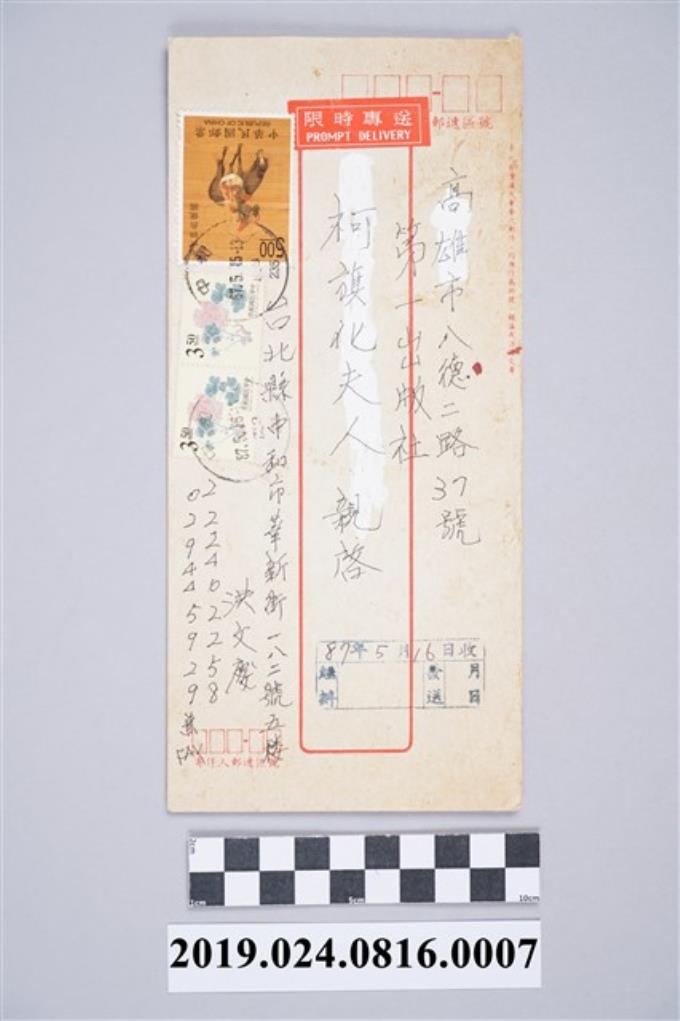 限時專送
PROMPT DELIVERY
郵遞區號
高雄市八德二路37號
第一出版社
柯旗化夫人 親啓
台北縣中和市華新街一八二號五樓
洪文慶
02 2240622258
0229445929 兼FAX
中華民國郵票
REPUBLIC OF CHINA
500
350
350
中和
87.5.15
87年5月16日收
發送
月
日
寄件人郵遞區號
2cm
1cm
5cm
10cm
2019.024.0816.0007